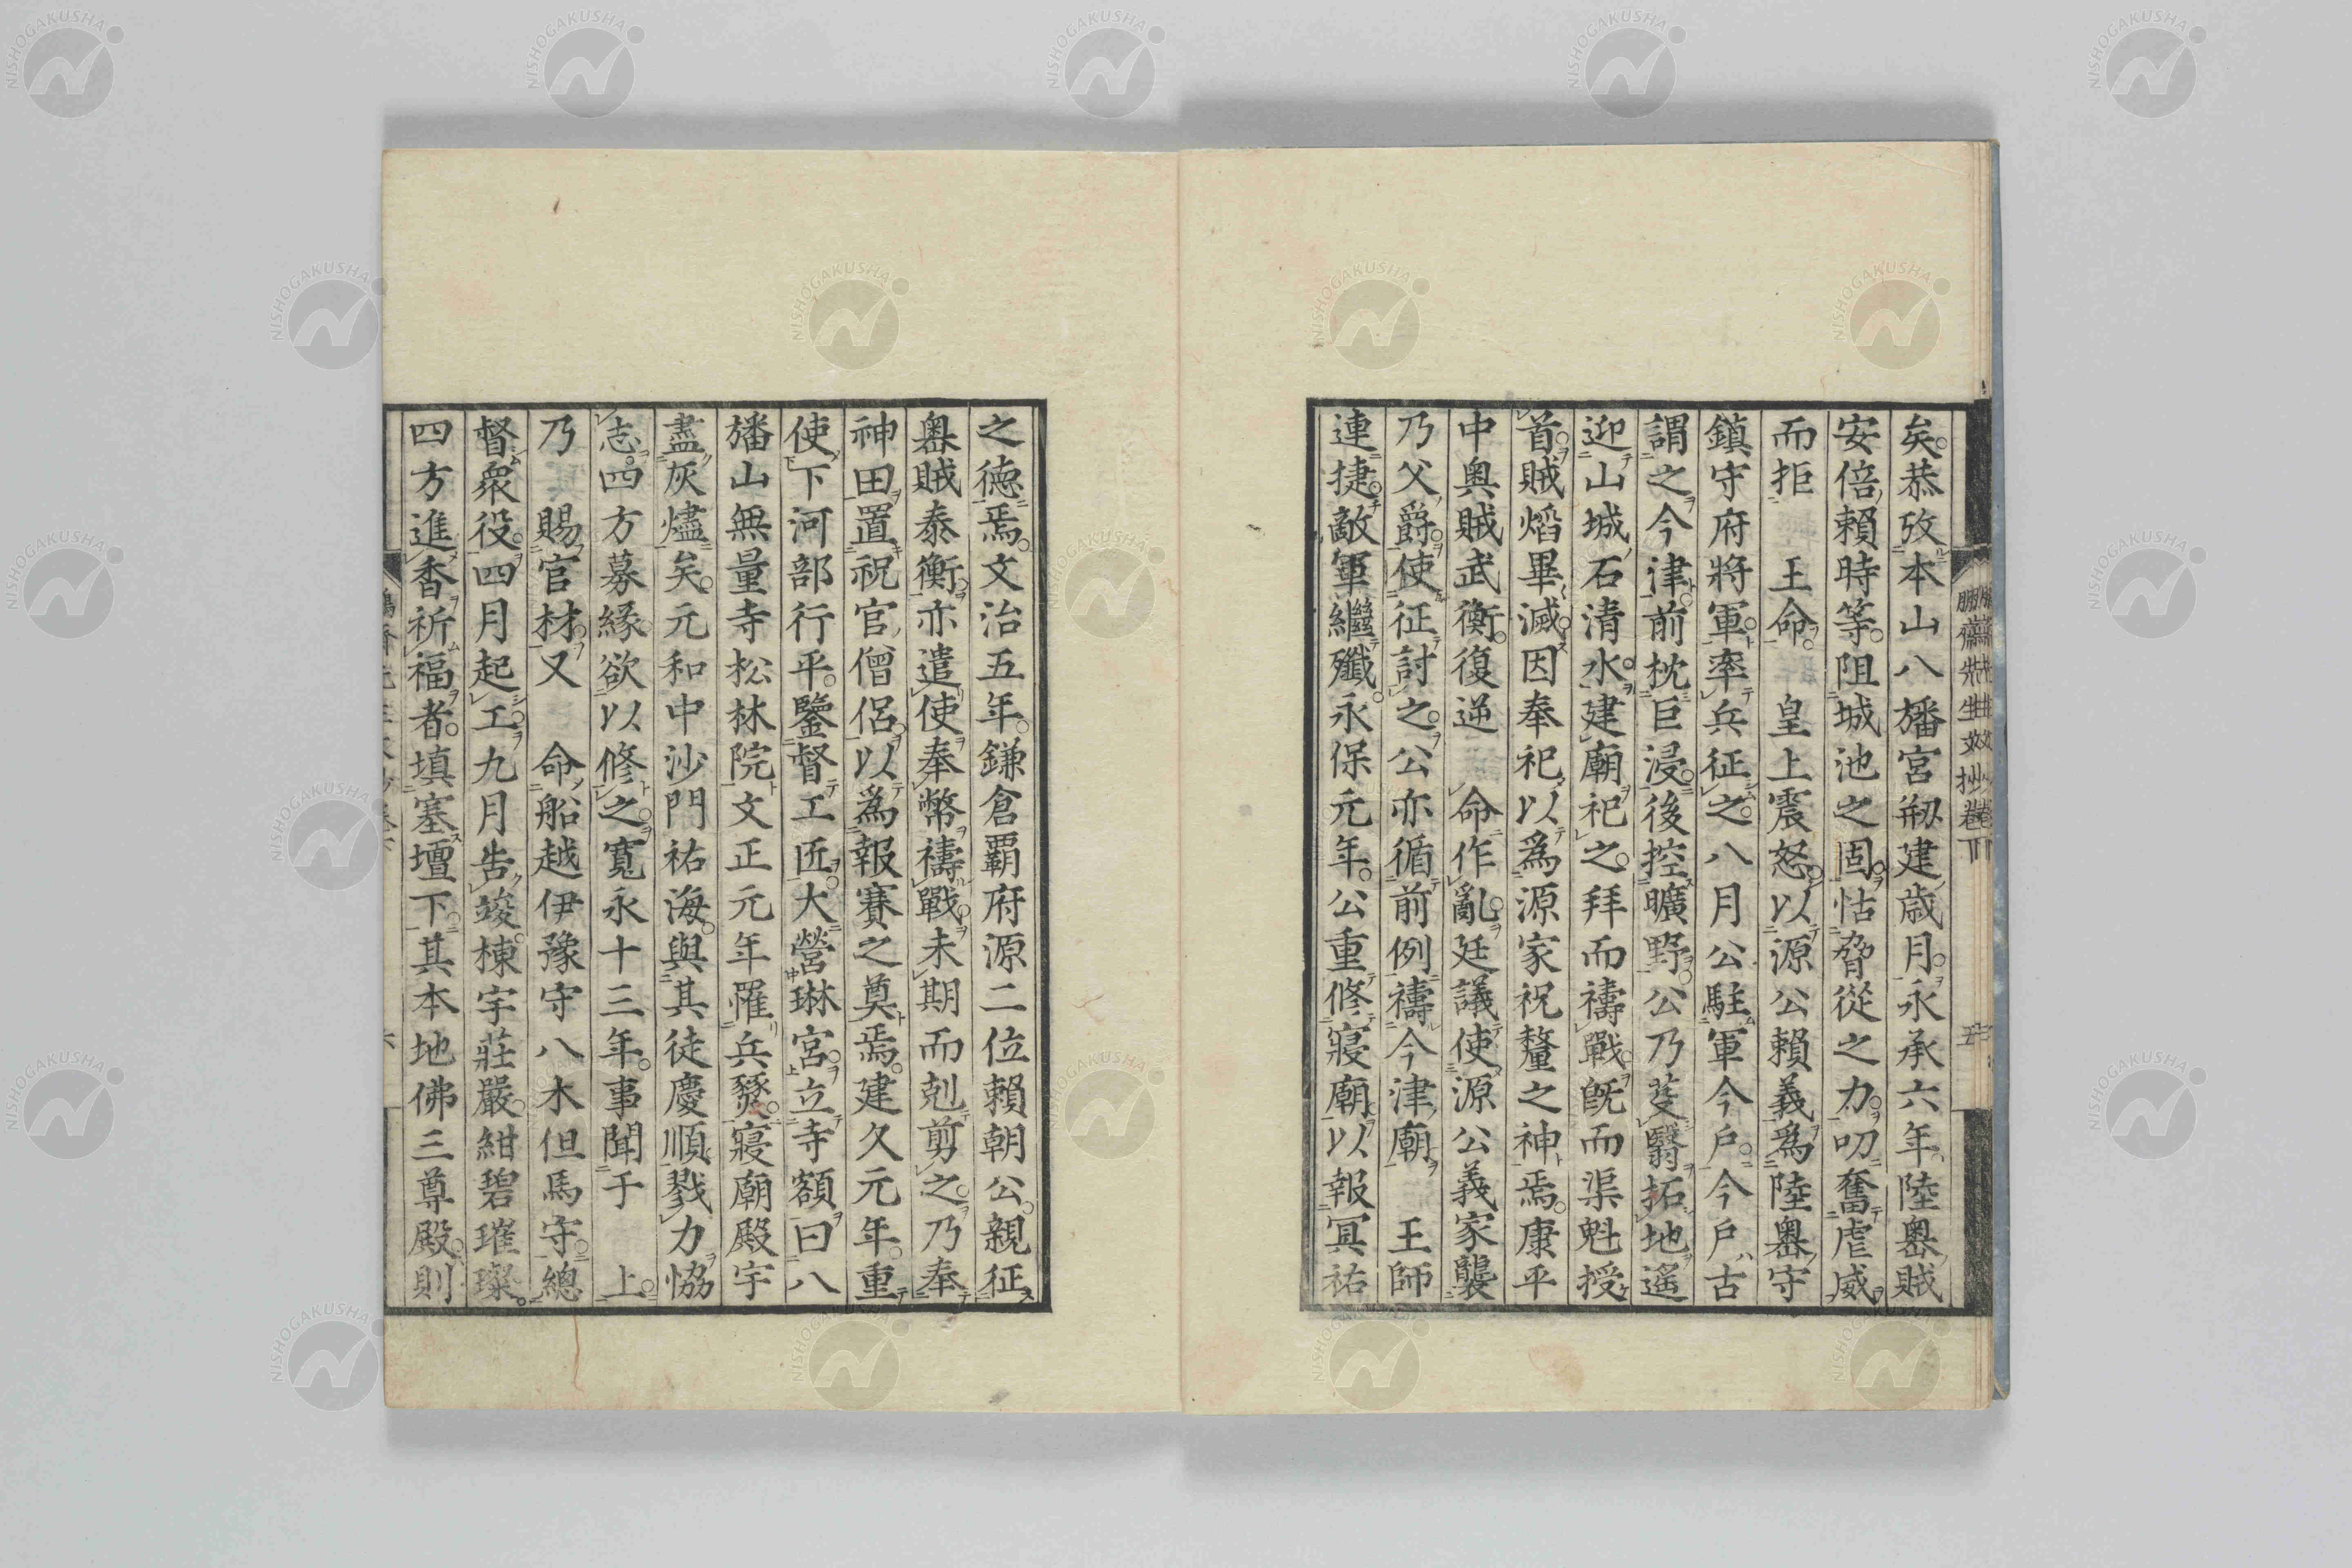 矣恭攷本山八旛宮剏建歳月永承六年陸奧賊
安倍賴時等阻城池之固怙脅從之力叨奮虐威
而拒 王命 皇上震怒以源公賴義爲陸奧守
鎮守府將軍率兵征之八月公駐軍今戶今戶古
謂之今津前枕巨浸後控曠野公乃芟翳拓地遙
迎山城石清水建廟祀之拜而禱戰旣而渠魁授
首賊熖畢滅因奉祀以爲源家祝釐之神焉康平
中奧賊武衡復逆 命作亂廷議使源公義家襲
乃父爵使征討之公亦循前例禱今津廟 王師
連捷敵軍繼殲永保元年公重修寢廟以報冥祐
之德焉文治五年鎌倉覇府源二位賴朝公親征
奧賊泰衡亦遣使奉幣禱戰未期而剋剪之乃奉
神田置祝官僧侶以爲報賽之奠焉建久元年重
使下河部行平鑒督工匠大營琳宮立寺額曰八
旛山無量寺松林院文正元年罹兵燹寢廟殿宇
盡灰燼矣元和中沙門祐海與其徒慶順戮力恊
志四方募緣欲以修之寬永十三年事聞于 上
乃 賜官材又 命船越伊豫守八木但馬守總
督衆役四月起工九月告竣棟宇莊嚴紺碧璀璨
四方進香祈福者填塞壇下其本地佛三尊殿則
NISHOGAKUSHA